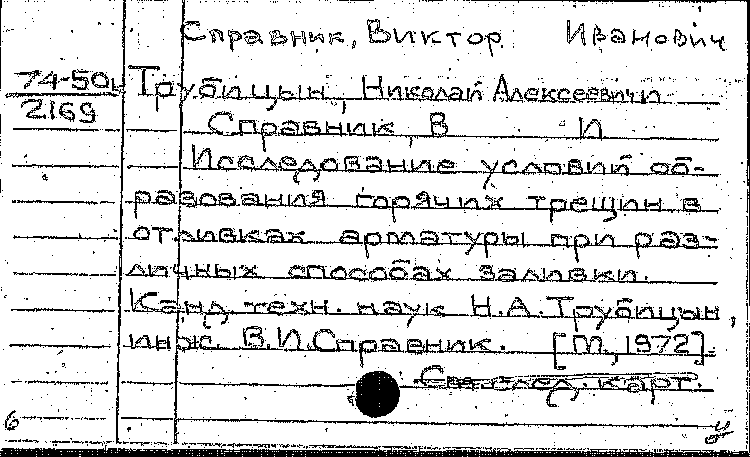 Справник, Виктор Иванович
74-50ь Трубицын, Николай Алексеевич и
2169
Справник, В И
Исследование условий об-
разования горячих трещин в
отливках арматуры при раз-
личных способах заливки.
Канд. техн. наук Н.А.Трубицын,
инж. В.И.Справник. [М., 1972].
См. след. карт.
6